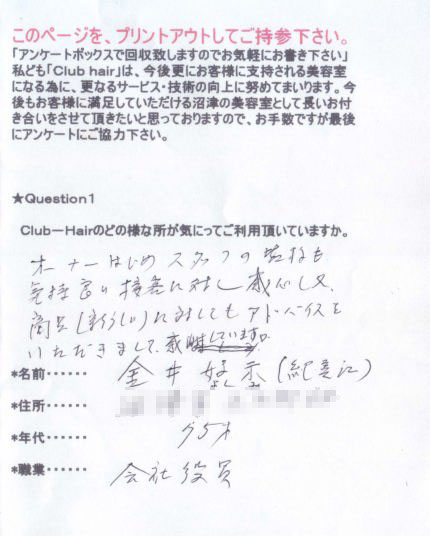 このページを、プリントアウトしてご持参下さい。
「アンケートボックスで回収致しますのでお気軽にお書き下さい」
私ども「Club hair」は、今後更にお客様に支持される美容室
になる為に、更なるサービス・技術の向上に努めてまいります。今
後もお客様に満足していただける沼津の美容室として長いお付
き合いをさせて頂きたいと思っておりますので、お手数ですが最後
にアンケートにご協力下さい。
★Question1
Club－Hairのどの様な所が気にってご利用頂いていますか。
オーナーはじめスタッフの皆様も
気持良い接客に対し感心し又、
商品(新らしい)に対してもアドバイスを
いただきまして、感謝しています。
*名前‥‥‥ 金井
*住所‥‥‥
*年代‥‥‥ 75才
*職業‥‥‥ 会社役員